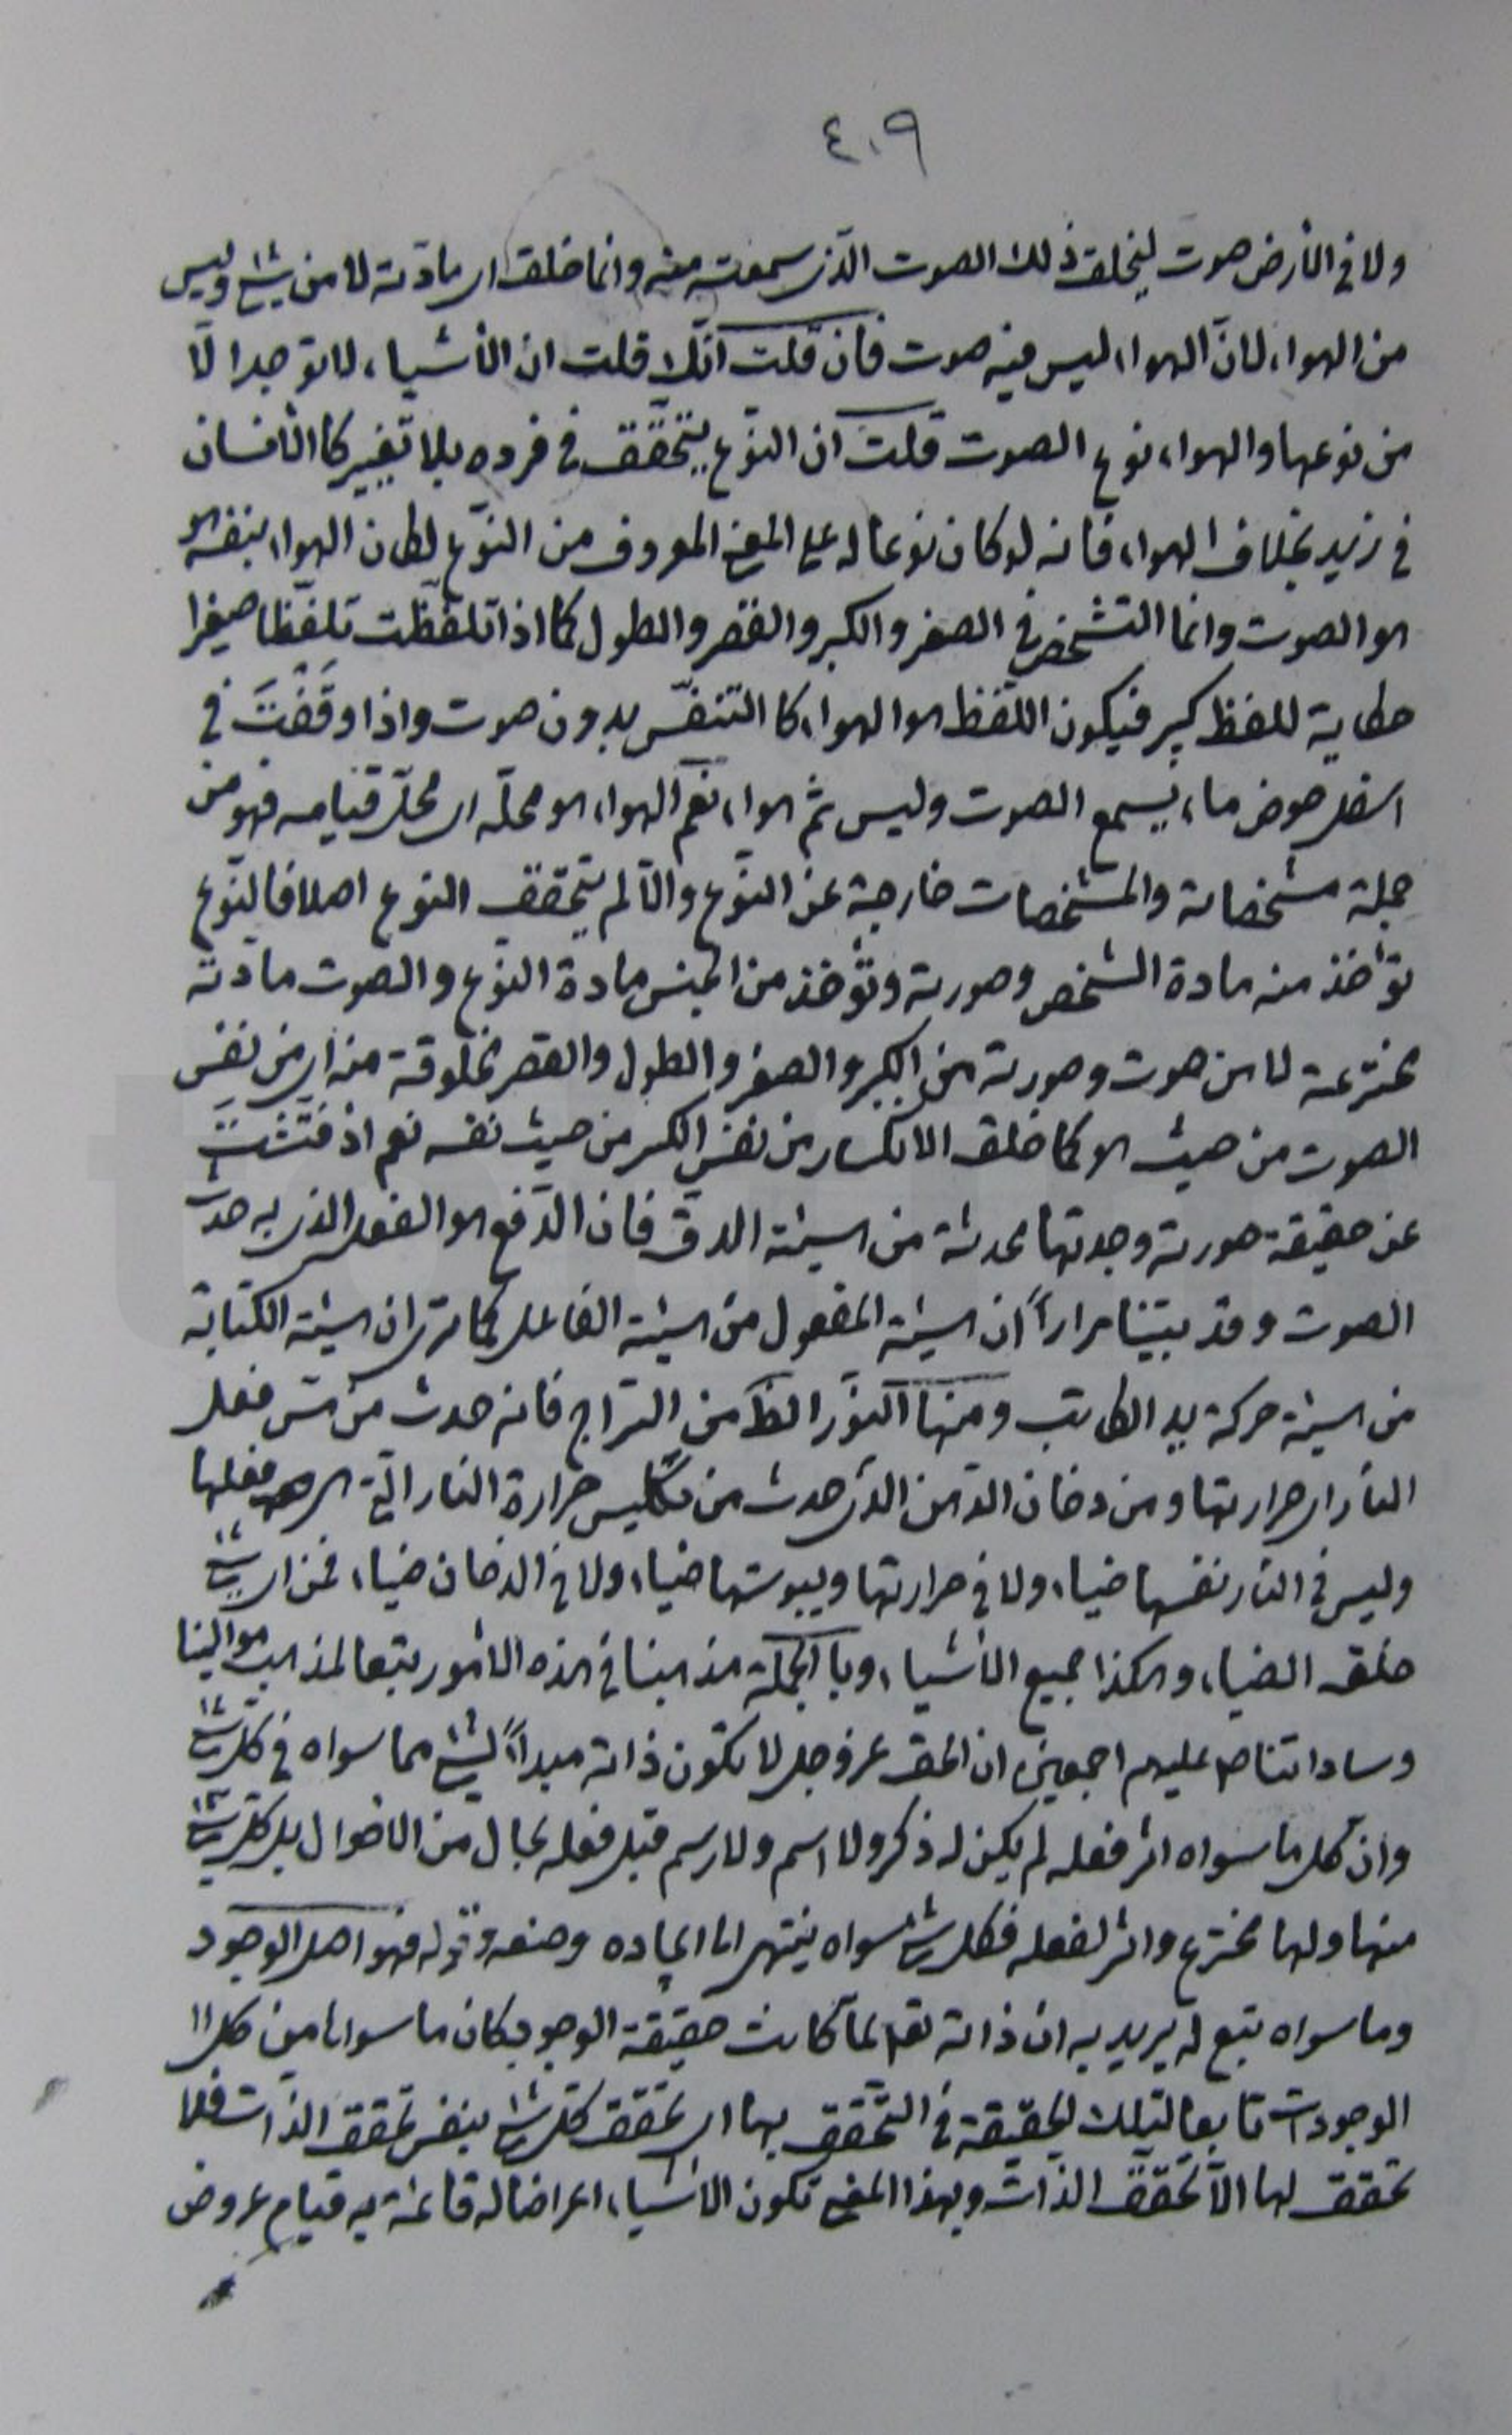 ٤٠٩
ولا في الأرض صوت ليخلق ذلك الصوت الذي سمعته منه وانما خلق اي مادته لا من شيء وليس
من الهواء لأنّ الهواء ليس فيه صوت فان قلت انّك قلت ان الأشياء لا توجد الّا
من نوعها والهواء نوع الصوت قلت ان النّوع يتحقّق في فرده بلا تغيير كالأنسان
في زيد بخلاف الهواء فانه لو كان نوعا له على المعنى المعروف من النّوع لكان الهواء بنفسه
هو الصوت وانما التشخّص في الصغر والكبر والقصر والطول كما اذا تلفّظت تلفّظا صغيرا
حكاية للفظ كبير فيكون اللّفظ هو الهواء كالتنفّس بدون صوت واذا وقفت في
اسفل حوض ماء يسمع الصوت وليس ثم هواء نعم الهواء هو محلّه اي محلّ قيامه فهو من
جملة مشخصاته والمشخصات خارجة عن النّوع والّا لم يتحقق النوع اصلا فالنّوع
تؤخذ منه مادة الشخص وصورته وتؤخذ من الجنس مادة النّوع والصوت مادته
مخترعة لا من صوت وصورته من الكبر والصغر والطول والقصر مخلوقة منه اي من نفس
الصوت من حيث هو كما خلق الانكسار من نفس الكسر من حيث نفسه نعم اذ فتّشت
عن حقيقة صورته وجدتها محدثة من هيئة الدق فان الدّفع هو الفعل الذي به حدث
الصوت وقد بيّنا مراراً ان هيئة المفعول من هيئة الفاعل كما ترى ان هيئة الكتابة
من هيئة حركة يد الكاتب ومنها النّور الظ من السّراج فانه حدث من مسّ فعل
النار اي حرارتها ومن دخان الدّهن الذي حدث من تكليس حرارة النار التي هي فعلها
وليس في النّار نفسها ضياء ولا في حرارتها ويبوستها ضياء ولا في الدخان ضياء فمن اي شيء
خلق الضياء وهكذا جميع الأشياء وبالجملة مذهبنا في هذه الأمور تبعا لمذهب موالينا
وساداتنا صع عليهم اجمعين ان الحق عز وجل لا تكون ذاته مبدأً لشيء مما سواه في كل شيء
وان كل ما سواه اثر فعله لم يكن له ذكر ولا اسم ولا رسم قبل فعله بحال من الأحوال بل كل شيء
منها ولها مخترع واثر لفعله فكل شيء سواه ينتهي الى ايجاده وصنعه وقوله فهو اصل الوجود
وما سواه تبع له يريد به ان ذاته تعالى لمّا كانت حقيقة الوجود فكان ما سواها من كل
الوجودات تابعا لتلك الحقيقة في التحقّق بها اي تحقق كل شيء بنفس تحقق الذات فلا
تحقق لها الّا تحقّق الذات وبهذا المعنى تكون الأشياء اعراضا له قائمة به قيام عروض